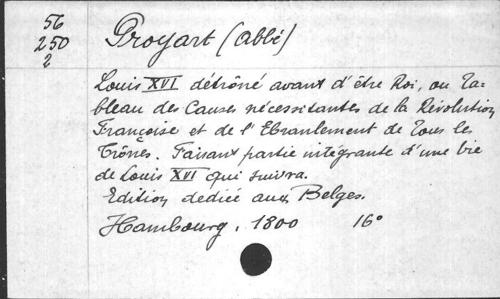 56
250
2
Proyart (abbé)
Louis XVI détrôné avant d'être Roi, ou Ta-
bleau des Causes nécessitantes de la Révolution
Françoise et de l'Ebranlement de tous les
Trônes. Faisant partie intégrante d'une vie
de Louis XVI qui suivra.
Edition dediée aux Belges.
Hambourg, 1800 16°